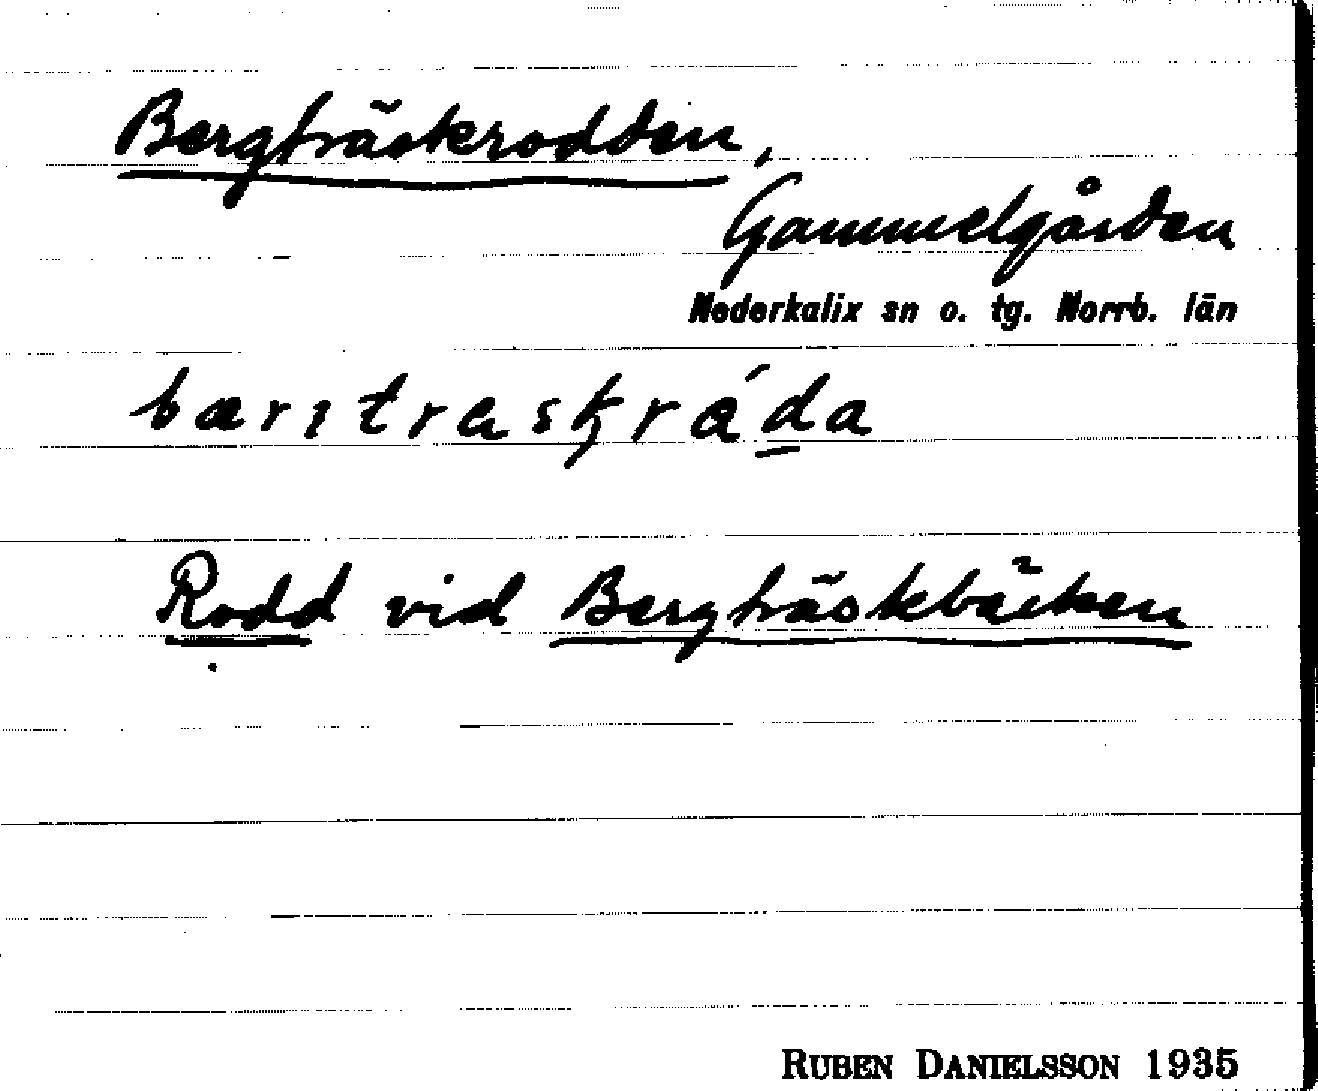 Bergträskrodden,
Gammelgården
Nederkalix sn o. tg. Norrb. län
bærstraskråda
Rodd vid Bergträskbäcken
RUBEN DANIELSSON 1935